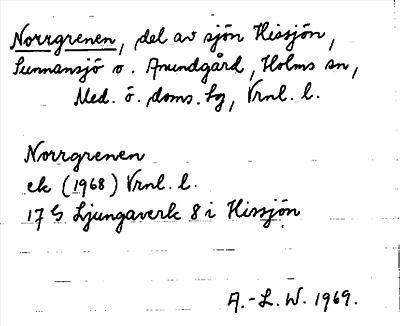 Norrgrenen, del av sjön Hissjön,
Sunnansjö o. Amundgård, Holms sn,
Med. ö. doms. lg, Vrnl. l.
Norrgrenen
ek (1968) Vrnl. l.
17 G Ljungaverk 8 i Hissjön
A.-L. W. 1969.